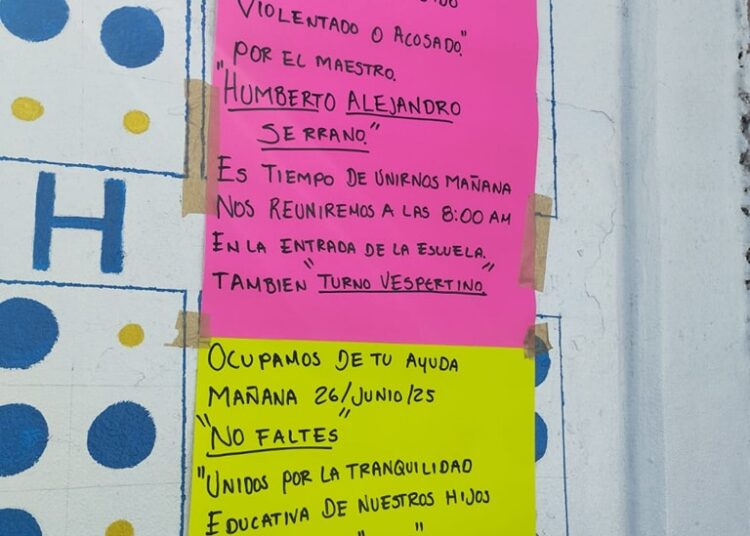 VIOLENTADO O ACOSADO."
POR EL MAESTRO.
"HUMBERTO ALEJANDRO
SERRANO."
ES TIEMPO DE UNIRNOS MAÑANA
NOS REUNIREMOS A LAS 8:00 AM
EN LA ENTRADA DE LA ESCUELA.
TAMBIEN "TURNO VESPERTINO."
H
OCUPAMOS DE TU AYUDA
MAÑANA 26/JUNIO/25
"NO FALTES"
"UNIDOS POR LA TRANQUILIDAD
EDUCATIVA DE NUESTROS HIJOS